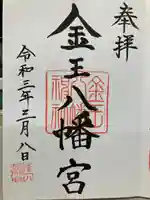 奉拝
金王八幡宮
令和三年三月八日